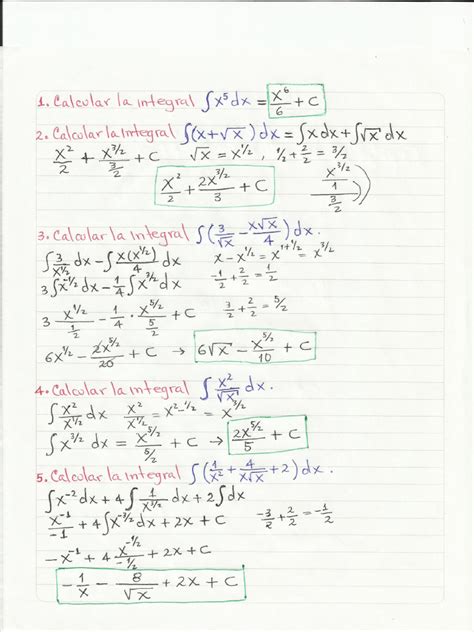 1. Calcular la integral ∫x⁵dx = x⁶/6 + C
2. Calcular la integral ∫(x+√x)dx = ∫xdx + ∫√x dx
x²/2 + x^(3/2)/(3/2) + C √x = x^(1/2), 1/2 + 2/2 = 3/2
x²/2 + 2x^(3/2)/3 + C x^(3/2)/1 / 3/2
3. Calcular la integral ∫(3/√x − x√x/4)dx.
∫3/x^(1/2) dx − ∫x(x^(1/2))/4 dx x − x^(1/2) = x^(1+1/2) = x^(3/2)
3∫x^(-1/2)dx − 1/4∫x^(3/2)dx -1/2 + 2/2 = 1/2
3 x^(1/2)/(1/2) − 1/4 · x^(5/2)/(5/2) + C 3/2 + 2/2 = 5/2
6x^(1/2) − 2x^(5/2)/20 + C → 6√x − x^(5/2)/10 + C
4. Calcular la integral ∫x²/√x dx.
∫x²/x^(1/2) dx x²/x^(1/2) = x^(2-1/2) = x^(3/2)
∫x^(3/2) dx = x^(5/2)/(5/2) + C → 2x^(5/2)/5 + C
5. Calcular la integral ∫(1/x² + 4/x√x + 2)dx.
∫x⁻²dx + 4∫1/x^(3/2) dx + 2∫dx
x⁻¹/-1 + 4∫x^(-3/2)dx + 2x + C -3/2 + 2/2 = -1/2
−x⁻¹ + 4 x^(-1/2)/(-1/2) + 2x + C
−1/x − 8/√x + 2x + C